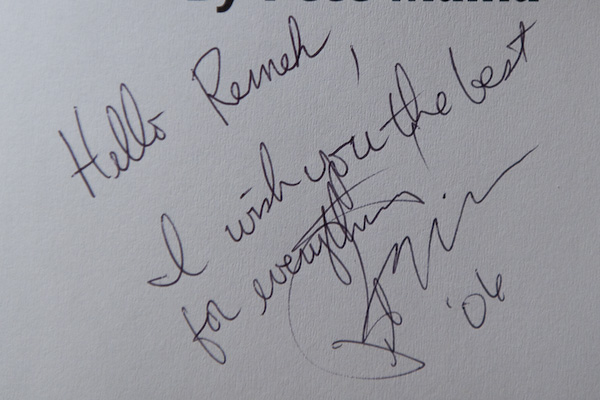 By
Hello Remeh,
I wish you the best
for everything
'06